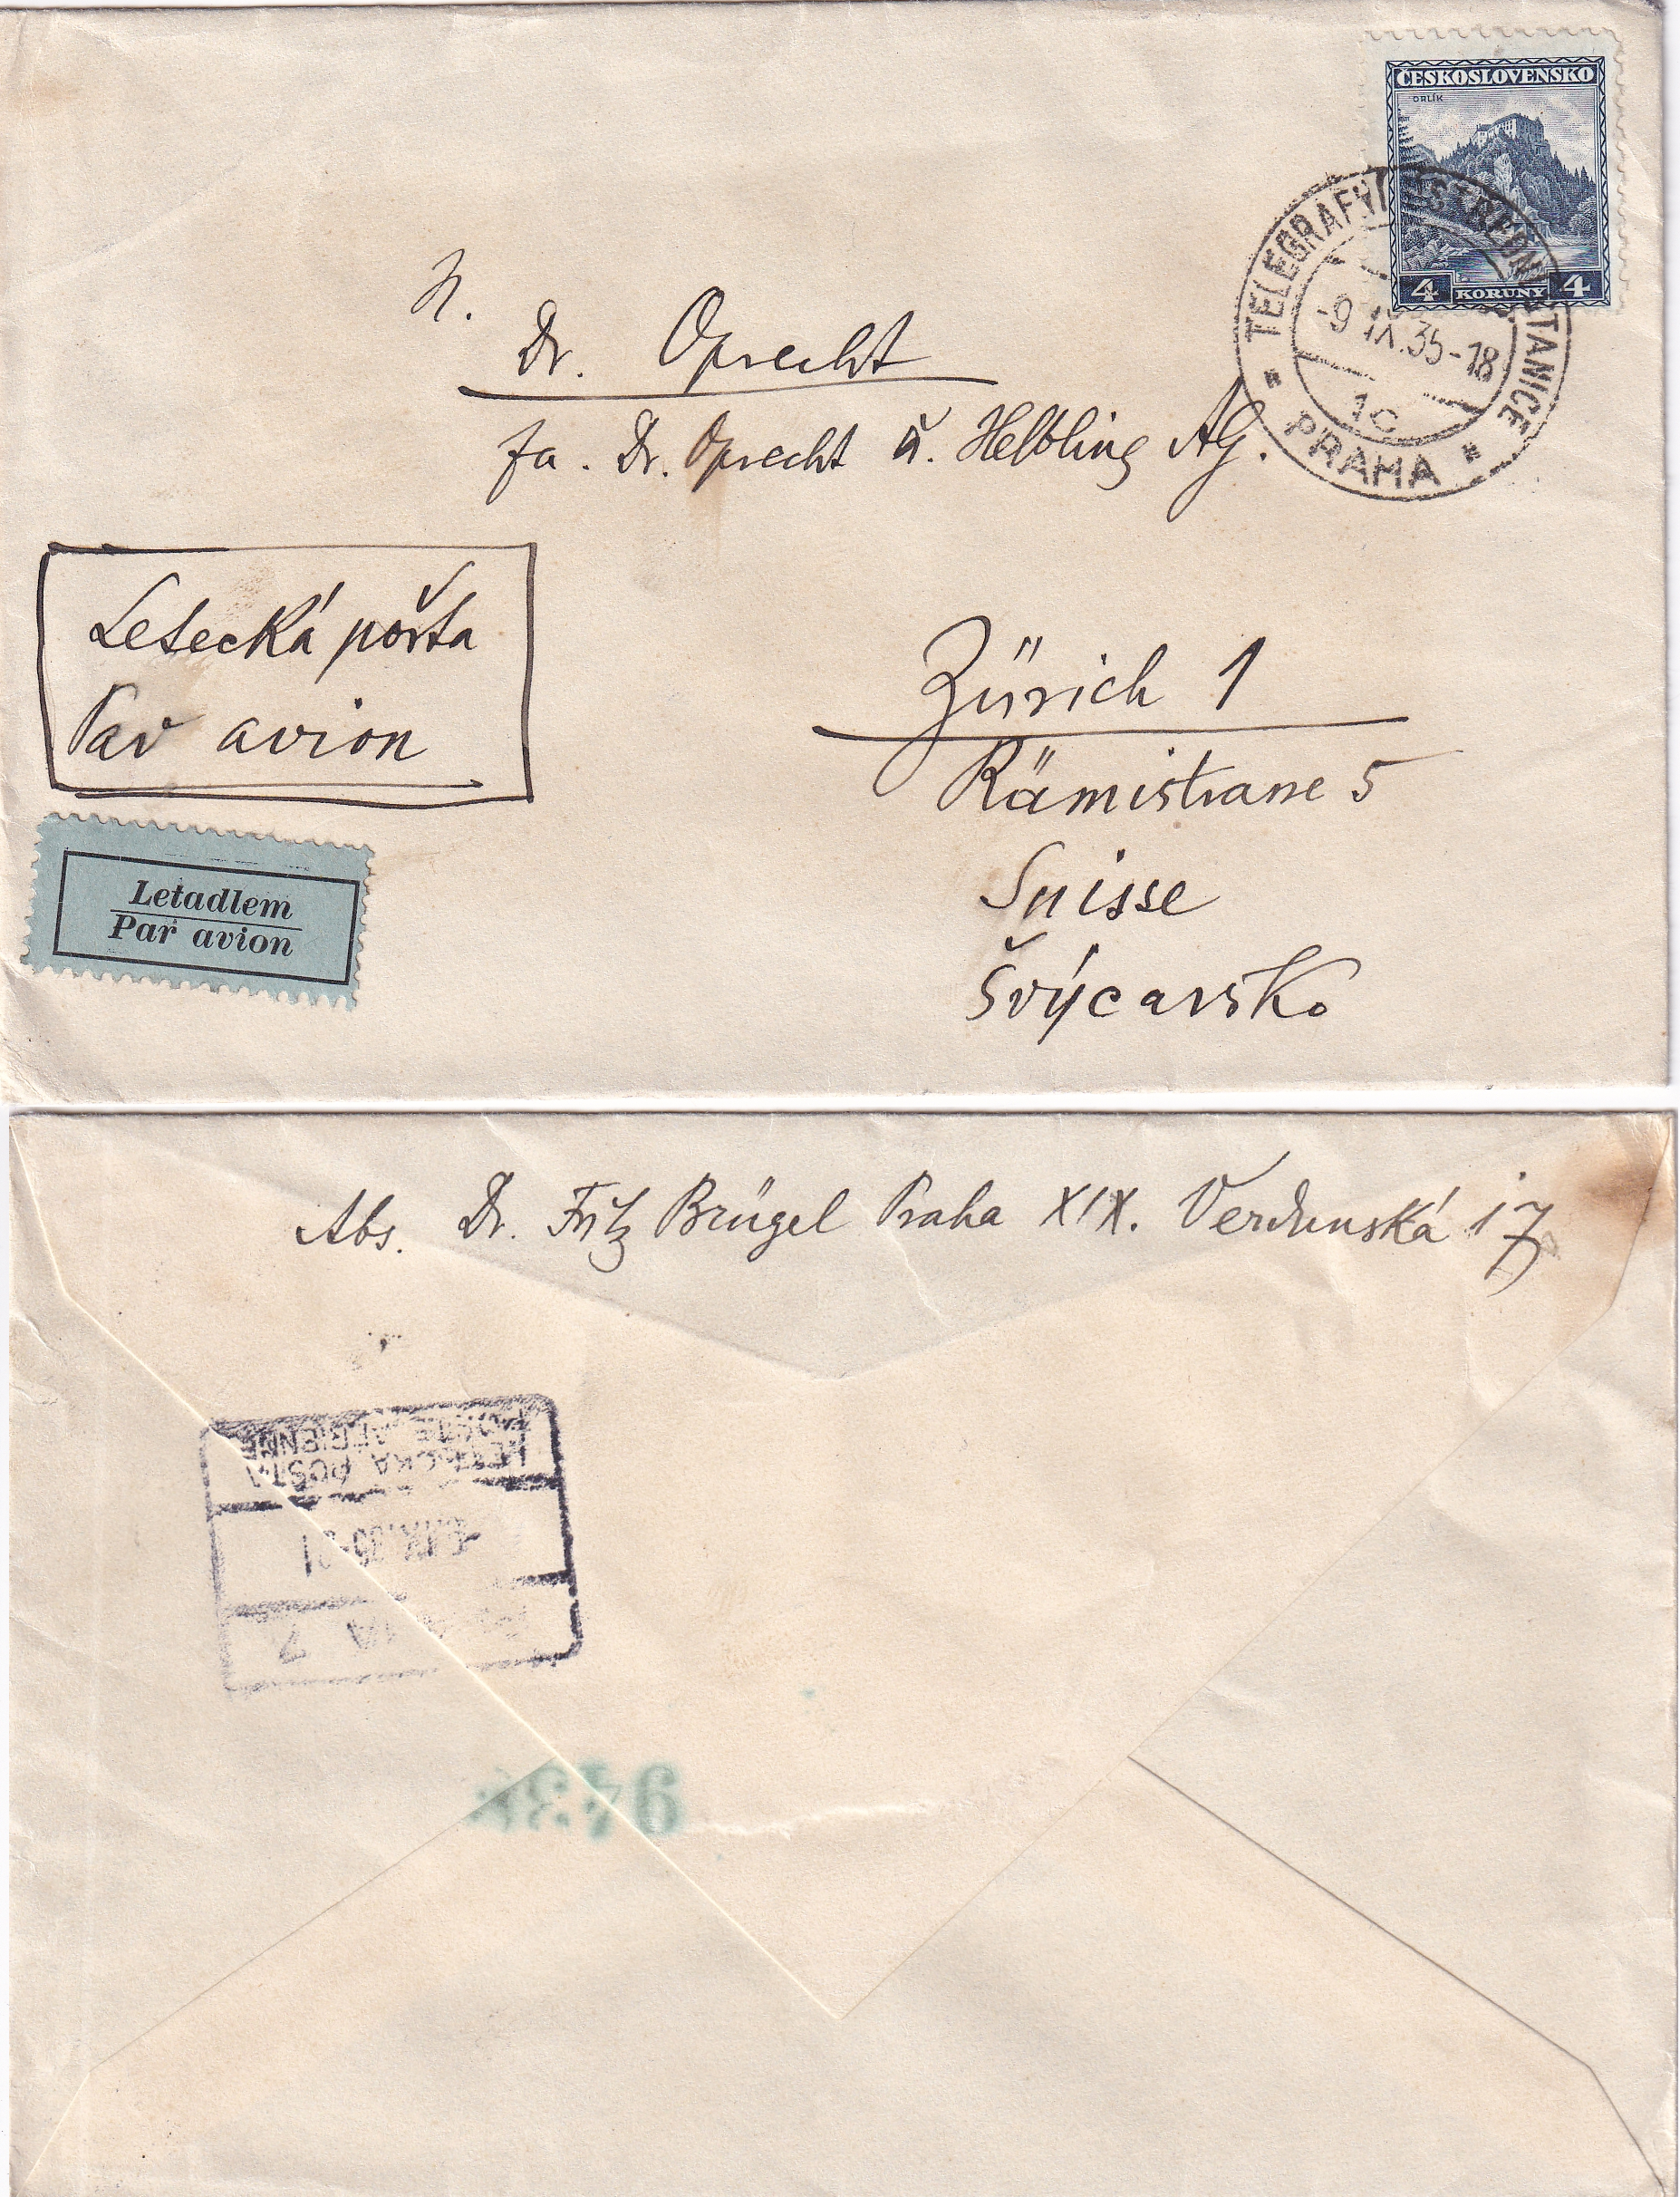 ČESKOSLOVENSKO
ORLÍK
4 KORUNY 4
TELEGRAFNÍ ÚSTŘEDNÍ STANICE
-9.IX.35-18
1c
PRAHA
H.
Dr. Oprecht
fa. Dr. Oprecht u. Helbling AG.
Letecká pošta
Par avion
Zürich 1
Rämistrasse 5
Suisse
Švýcarsko
Letadlem
Par avion
Abs. Dr. Fritz Brügel Praha XIX. Verdunská 17
LETECKÁ POŠTA
POSTE AÉRIENNE
PRAHA 7